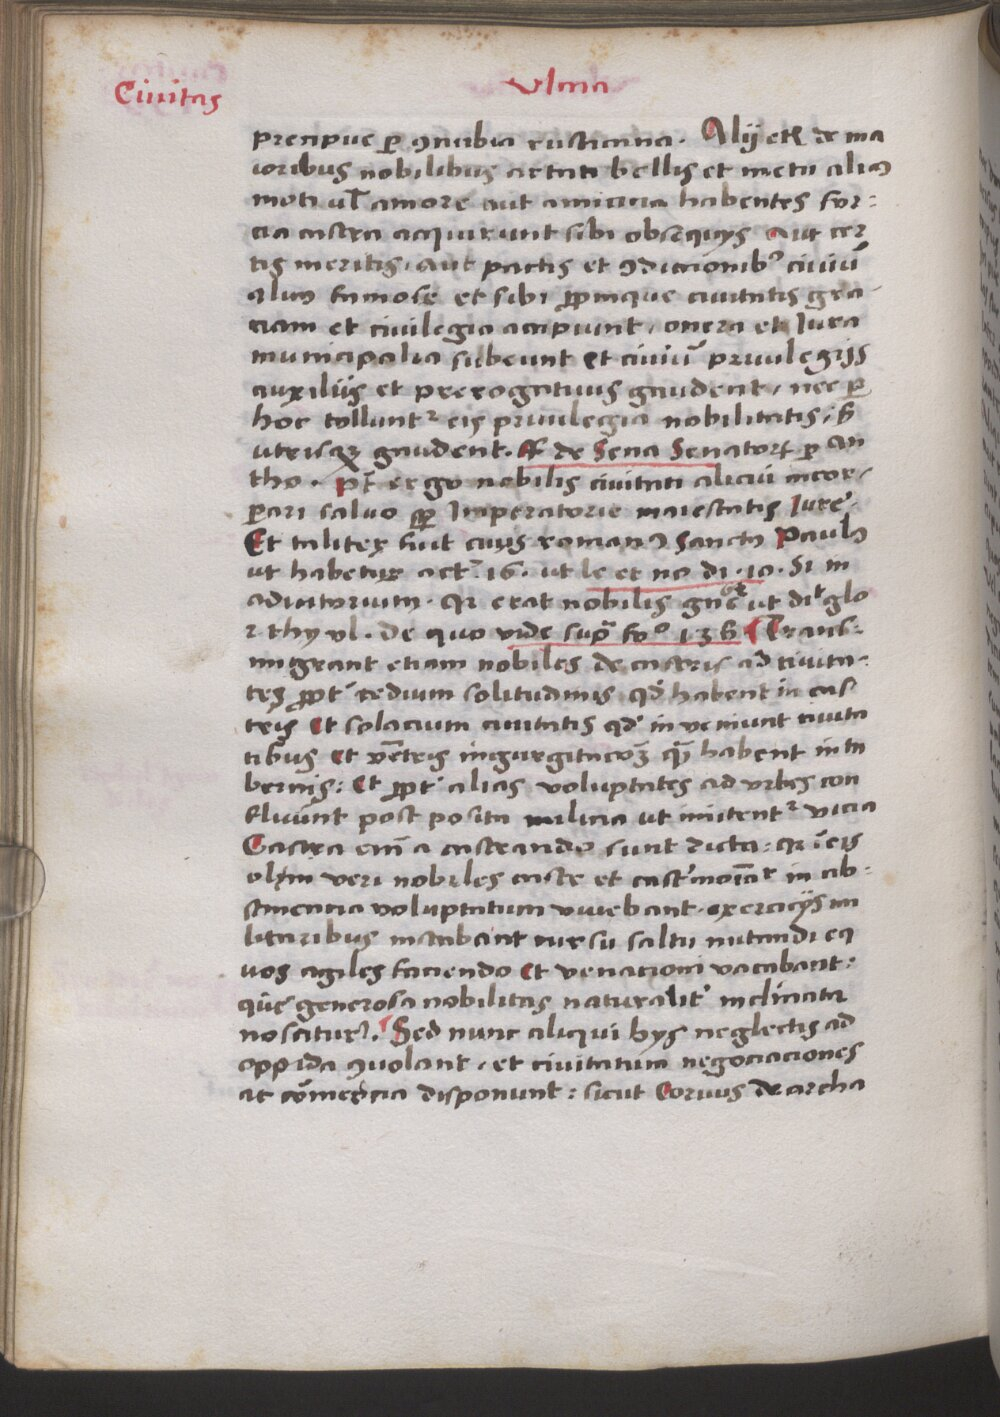 Ciuitas
Vlma
precipue ꝑ ꝯnubia rusticana. Alij etꝫ de ma
ioribus nobilibus artati bellis et metu alioꝝ
moti ul̄ amore aut amicicia habentes for:
cia castra acquirunt sibi obsequys aut cer
tis meritis, aut pactis et ꝯdicionibꝰ ciuiū
famose et sibi ꝓpinque ciuitatis gra
ciam et ciuilegia accipiunt, onera et Iura
municipalia subeunt Et ciuiū priuilegijs
auxilijs et prerogatiuis gaudent, nec ꝑ
hoc tolluntᷣ eis priuilegia nobilitatis, sꝫ
utrisqꝫ gaudent. ff de Sena Senatoꝝ ꝑ an
tho. pt̄ ergo nobilis ciuitati alicui incor-
ꝑari saluo sꝑ Imperatorie maiestatis Iure.
Et taliter fuit ciuis romanꝰ Sanctꝰ Paulꝰ
ut habetur act. 16. ut le et no di. 10. Si in
adiutorium. qꝛ erat nobilis ut dit glo
2 thy ul. de quo vide supᷓ foº 136 Trans:
migrant etiam nobiles de castris ad ciuita-
tes ꝓpt̄ tedium solitudinis qd̄ habent in cas
tris Et solacium ciuitatis qd̄ in veniunt ciuita
tibus Et vētris ingurgitacōꝫ quā habent in ta
bernis: Et ꝓpt̄ alias voluptates ad vrbes con
fluunt post posita milicia ut imitentᷣ vicia
Castra em̄ a castrando sunt dicta: qꝛ ī eis
olym veri nobiles caste et in ab:
stinencia voluptatum viuebant. exercicijs mi
litaribus instabant cursu saltu nutandi eq
uos agiles faciendo Et venacioni vacabant:
generosa nobilitas naturalit̄ inclinata
noscitur. Sed nunc aliqui hys neglectis ad
oppida ꝯuolant, et ciuitatum negociaciones
ac cōmercia disponunt: sicut Coruus de archa